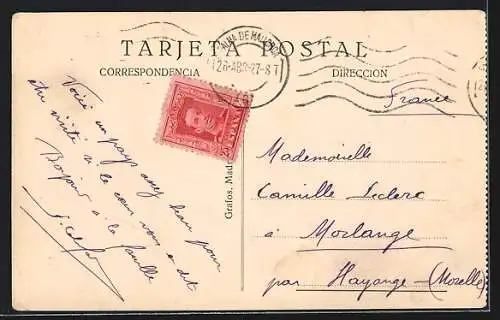 TARJETA POSTAL
CORRESPONDENCIA
DIRECCION
PALMA DE MALLORCA
26·ABR·27·8T
Voici un pays assez beau pour
être visité si le cœur vous en dit
Bonjour à la famille
Grafos. Mad
France
Mademoiselle
Camille Leclerc
à Morlange
par Hayange-(Moselle)